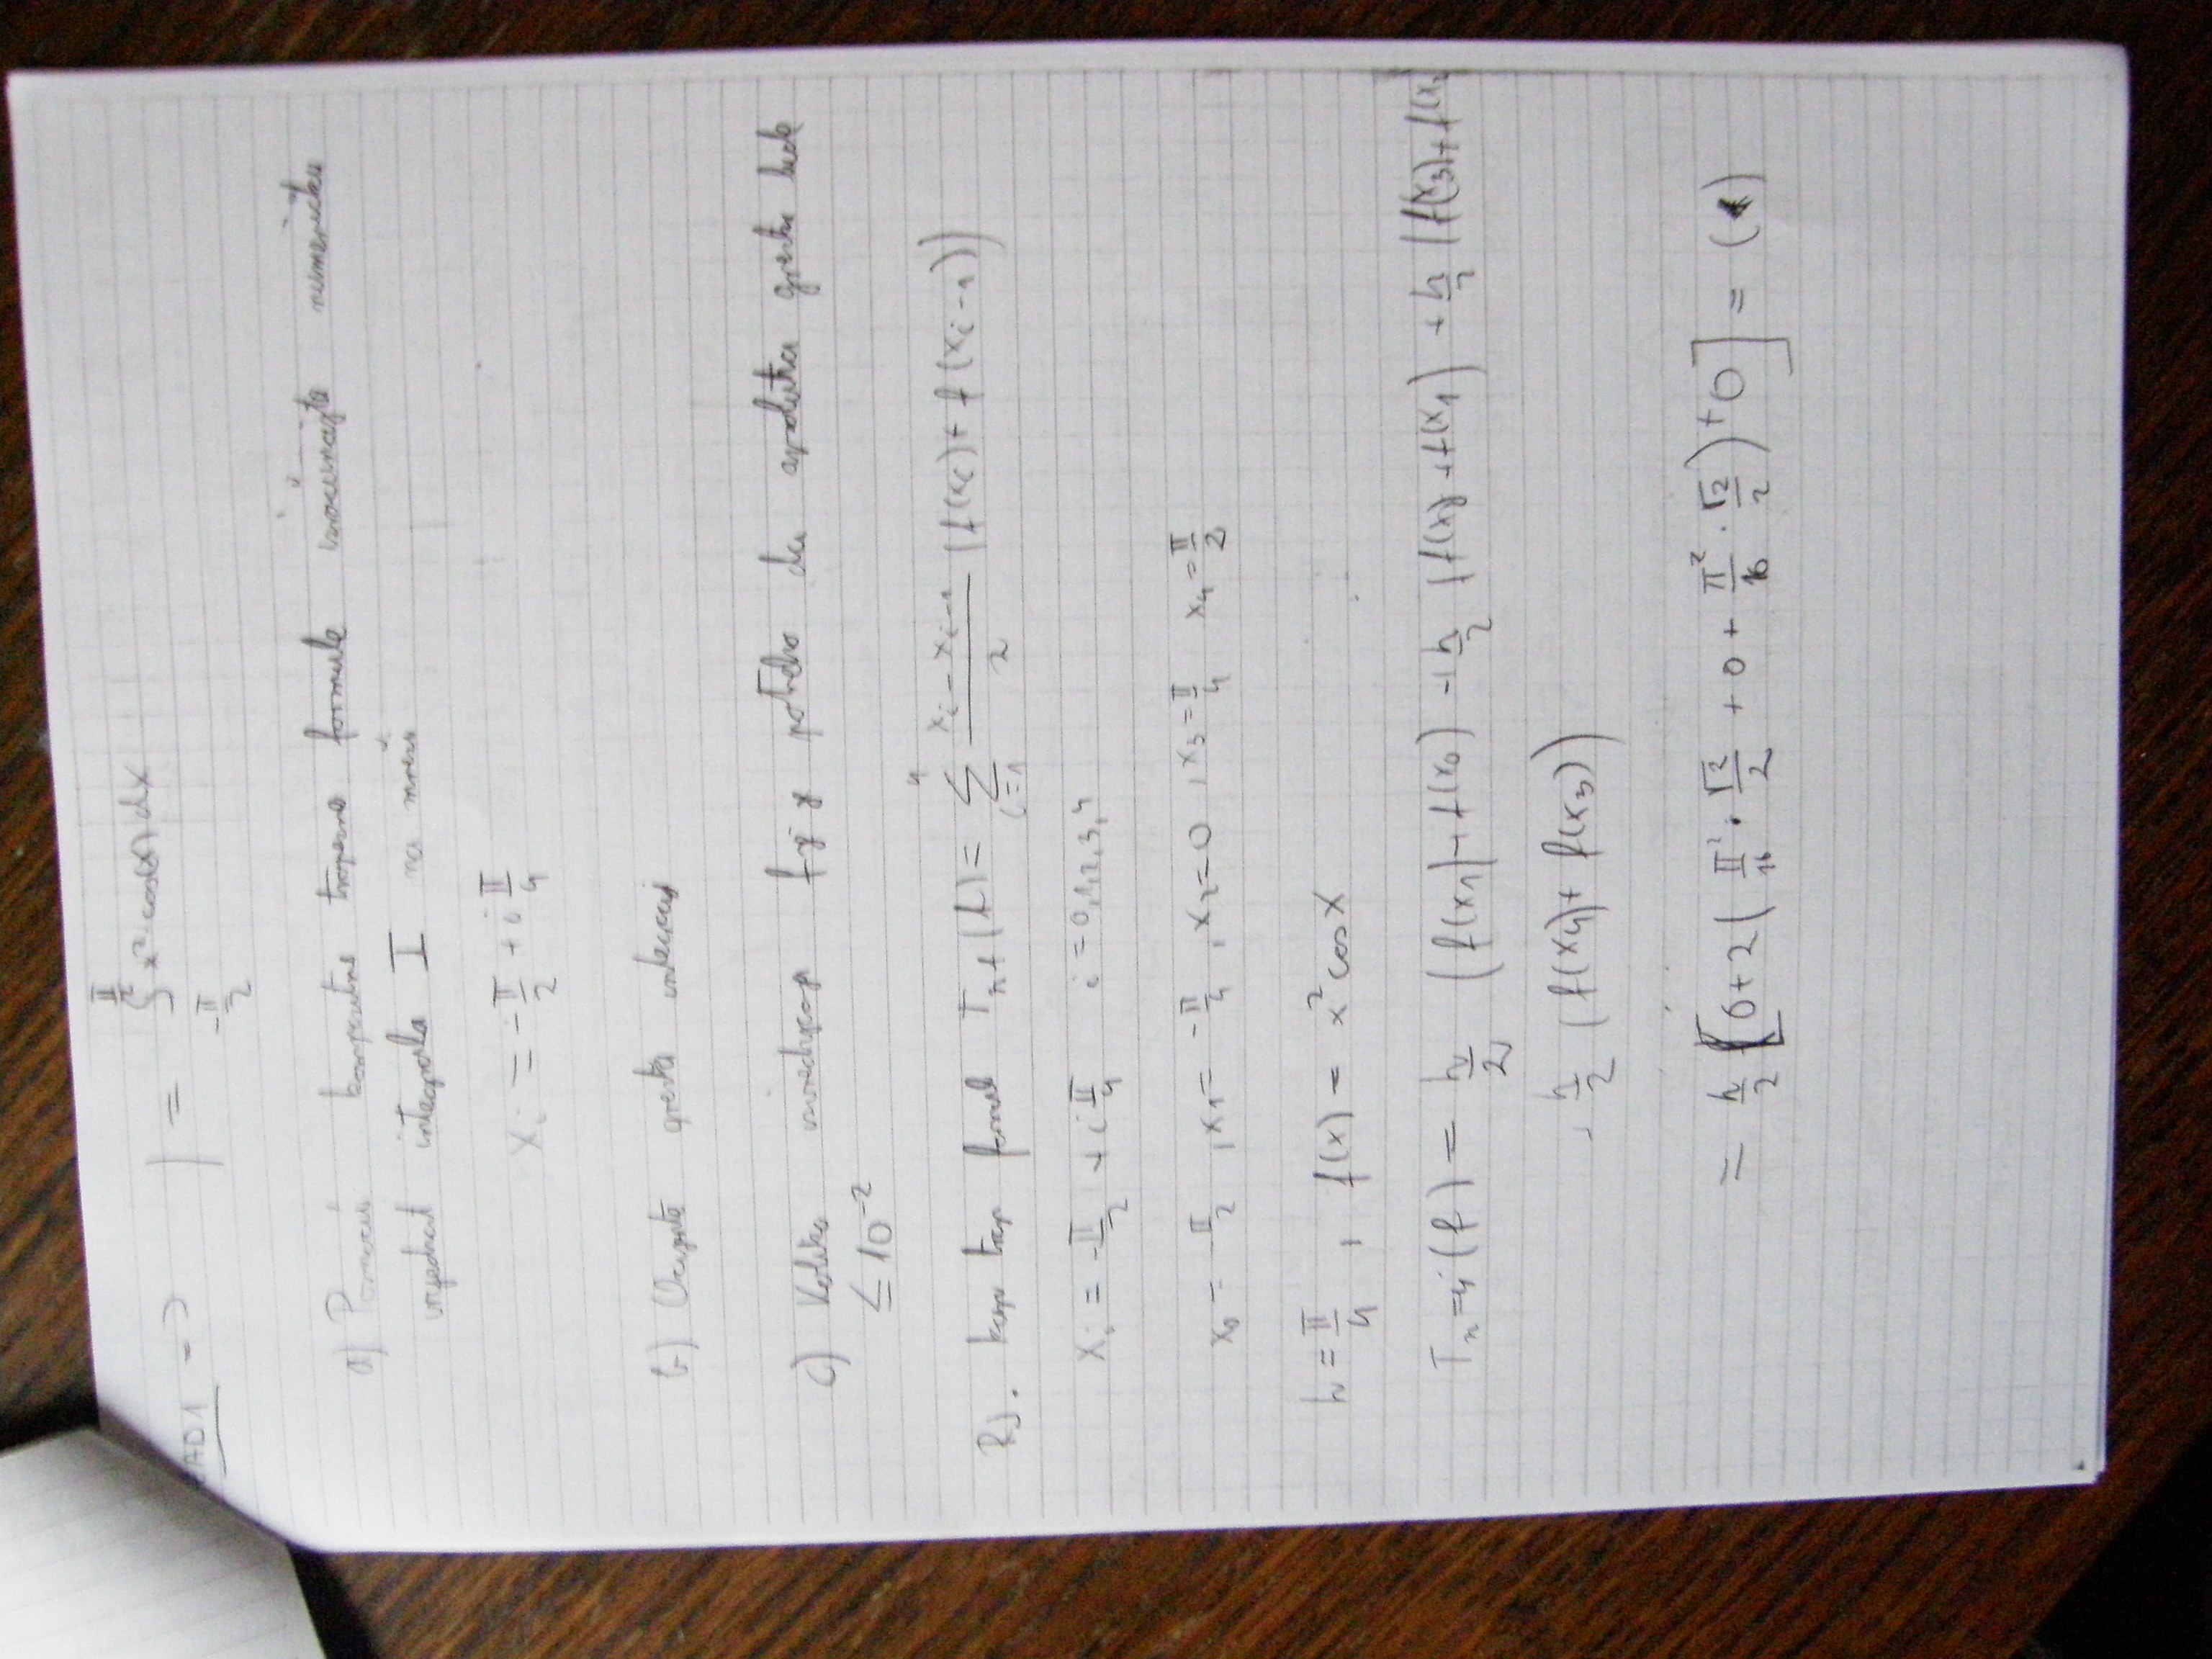 ZAD1 -> I = ∫_{-π/2}^{π/2} x² cos(x) dx
a) Pomoću kompozitne trapezne formule izračunajte numeričku
vrijednost integrala I na mreži
x_i = -π/2 + i π/4
b) Ocijenite grešku
c) Koliko potrebno da apsolutna greška bude
≤ 10^{-2}
Rj. komp trap formul T_{n+1}(f) = Σ_{i=1}^{4} (x_i - x_{i-1})/2 (f(x_i) + f(x_{i-1}))
x_i = -π/2 + i π/4 i = 0,1,2,3,4
x_0 = -π/2 , x_1 = -π/4 , x_2 = 0 , x_3 = π/4 x_4 = π/2
h = π/4 , f(x) = x² cos x
T_{n=4}(f) = h/2 (f(x_1) + f(x_0)) + h/2 (f(x_2) + f(x_1)) + h/2 (f(x_3) + f(x_2)
h/2 (f(x_4) + f(x_3))
= h/2 [0 + 2(π²/16 · √2/2 + 0 + π²/16 · √2/2) + 0] = (*)